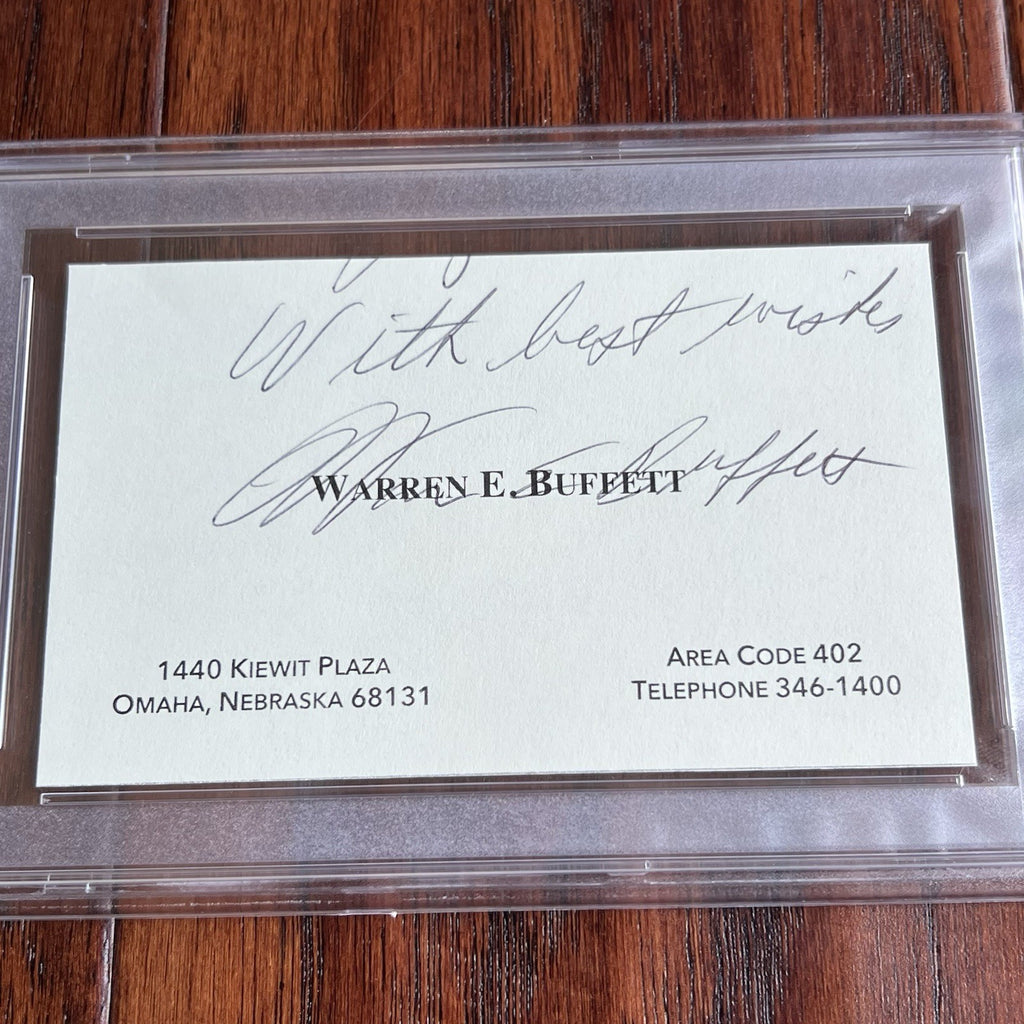 With best wishes
Warren E Buffett
WARREN E. BUFFETT
1440 KIEWIT PLAZA
OMAHA, NEBRASKA 68131
AREA CODE 402
TELEPHONE 346-1400